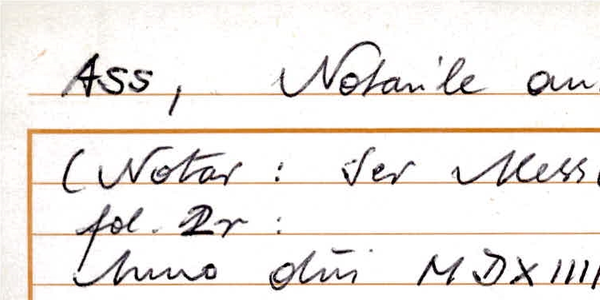 ASS, Notarile an
(Notar : Ser Mess
fol. 2r :
Anno dni MDXIIII